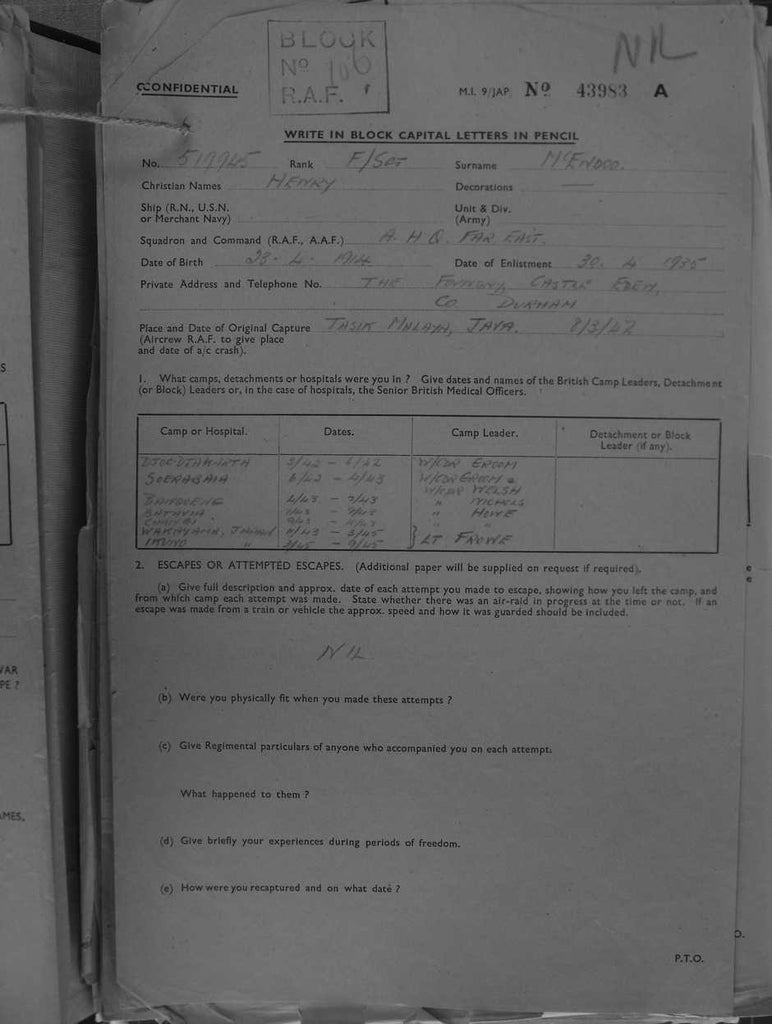 BLOCK
Nº 106
R.A.F.
NIL
CONFIDENTIAL
M.I. 9/JAP Nº 43983 A
WRITE IN BLOCK CAPITAL LETTERS IN PENCIL
No. 519945 Rank F/SGT Surname
Christian Names HENRY Decorations —
Ship (R.N., U.S.N. or Merchant Navy) Unit & Div. (Army)
Squadron and Command (R.A.F., A.A.F.) A. H Q. FAR EAST.
Date of Birth 23 - 4 - 1914 Date of Enlistment 30. 4 1935
Private Address and Telephone No. THE CASTLE EDEN,
CO DURHAM
Place and Date of Original Capture TASIK MALAYA, JAVA. 8/3/42
(Aircrew R.A.F. to give place
and date of a/c crash).
1. What camps, detachments or hospitals were you in ? Give dates and names of the British Camp Leaders, Detachment
(or Block) Leaders or, in the case of hospitals, the Senior British Medical Officers.
Camp or Hospital. Dates. Camp Leader. Detachment or Block
Leader (if any).
3/42 - 6/42 W/CDR GROOM
SOERABAIA 6/42 - 4/43 W/CDR GROOM &
W/CDR WELSH
BANDOENG 4/43 - 7/43 " NICHOLS
BATAVIA " HOWE
WAKAYAMA, JAPAN 11/43 - 3/45
IKUNO " 3/45 - 9/45 } LT FROWE
2. ESCAPES OR ATTEMPTED ESCAPES. (Additional paper will be supplied on request if required).
(a) Give full description and approx. date of each attempt you made to escape, showing how you left the camp, and
from which camp each attempt was made. State whether there was an air-raid in progress at the time or not. If an
escape was made from a train or vehicle the approx. speed and how it was guarded should be included.
NIL
(b) Were you physically fit when you made these attempts ?
(c) Give Regimental particulars of anyone who accompanied you on each attempt.
What happened to them ?
(d) Give briefly your experiences during periods of freedom.
(e) How were you recaptured and on what date ?
P.T.O.